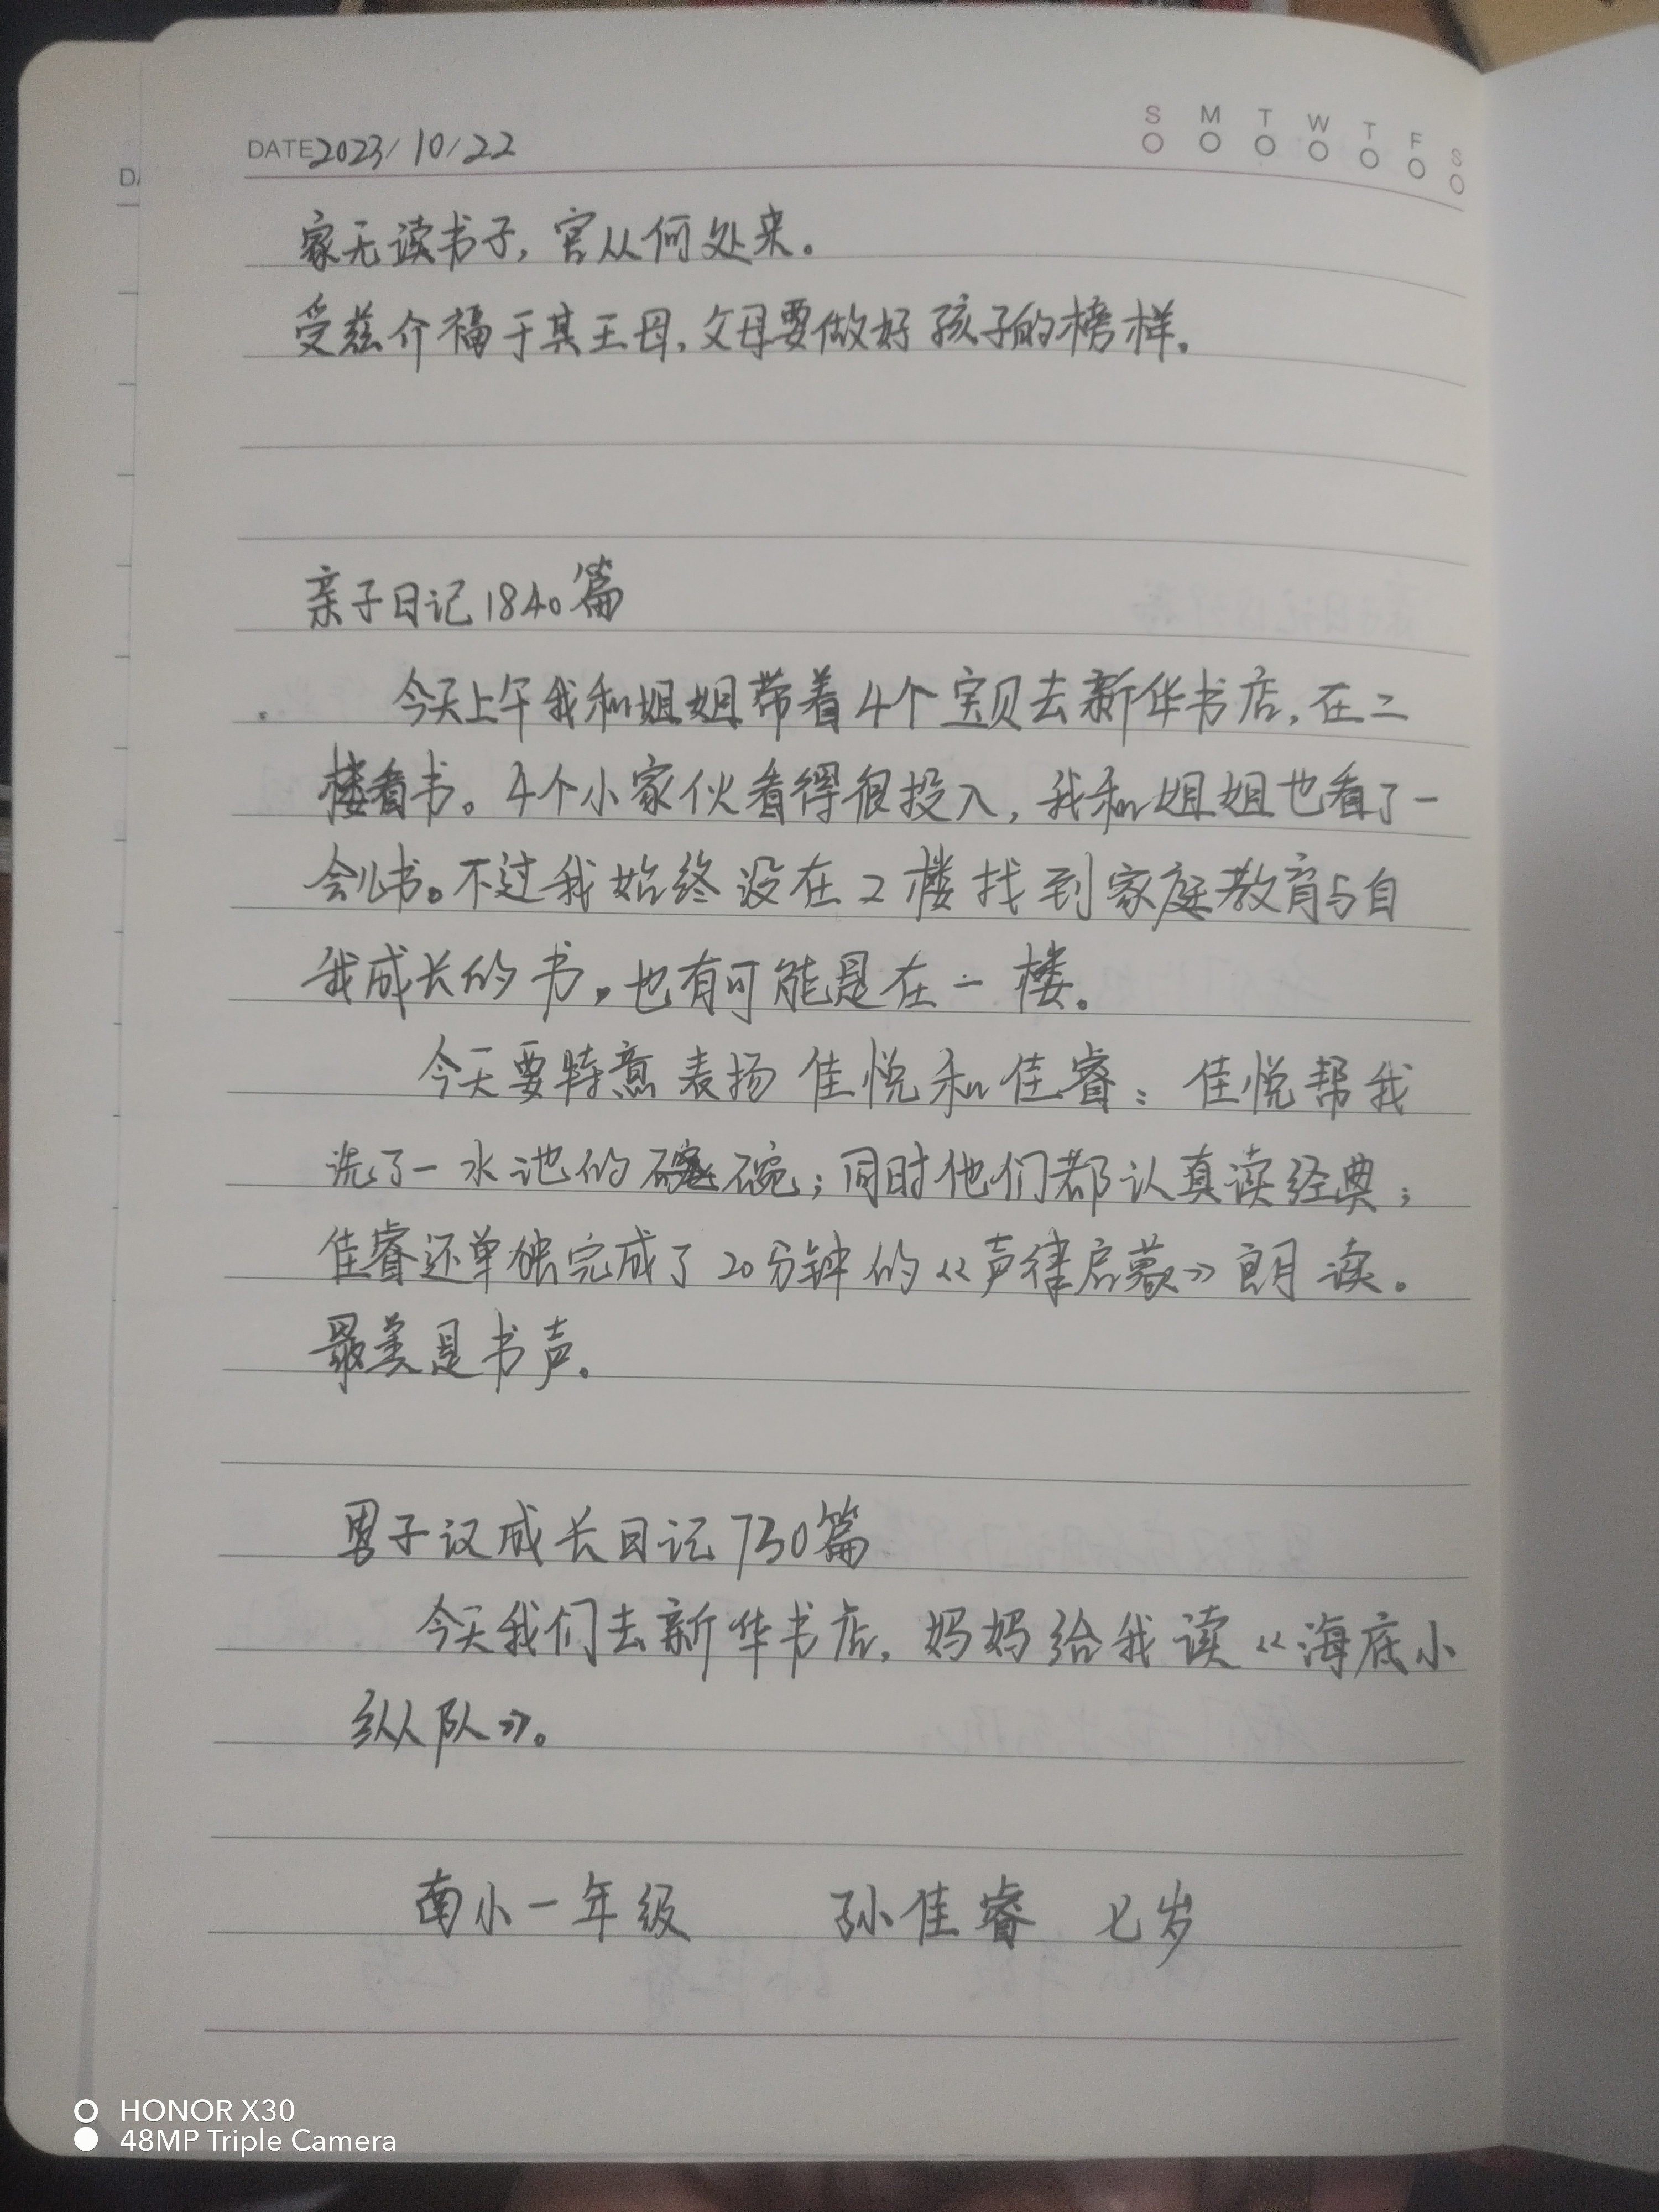 DATE 2023/10/22
S M T W T F S
家无读书子，官从何处来。
受兹介福于其王母，父母要做好孩子的榜样。
亲子日记1840篇
今天上午我和姐姐带着4个宝贝去新华书店，在二
楼看书。4个小家伙看得很投入，我和姐姐也看了一
会儿书。不过我始终没在2楼找到家庭教育与自
我成长的书，也有可能是在一楼。
今天要特意表扬佳悦和佳睿：佳悦帮我
洗了一水池的碗；同时他们都认真读经典；
佳睿还单独完成了20分钟的《声律启蒙》朗读。
最美是书声。
男子汉成长日记730篇
今天我们去新华书店，妈妈给我读《海底小
纵队》。
南小一年级 孙佳睿 七岁
HONOR X30
48MP Triple Camera